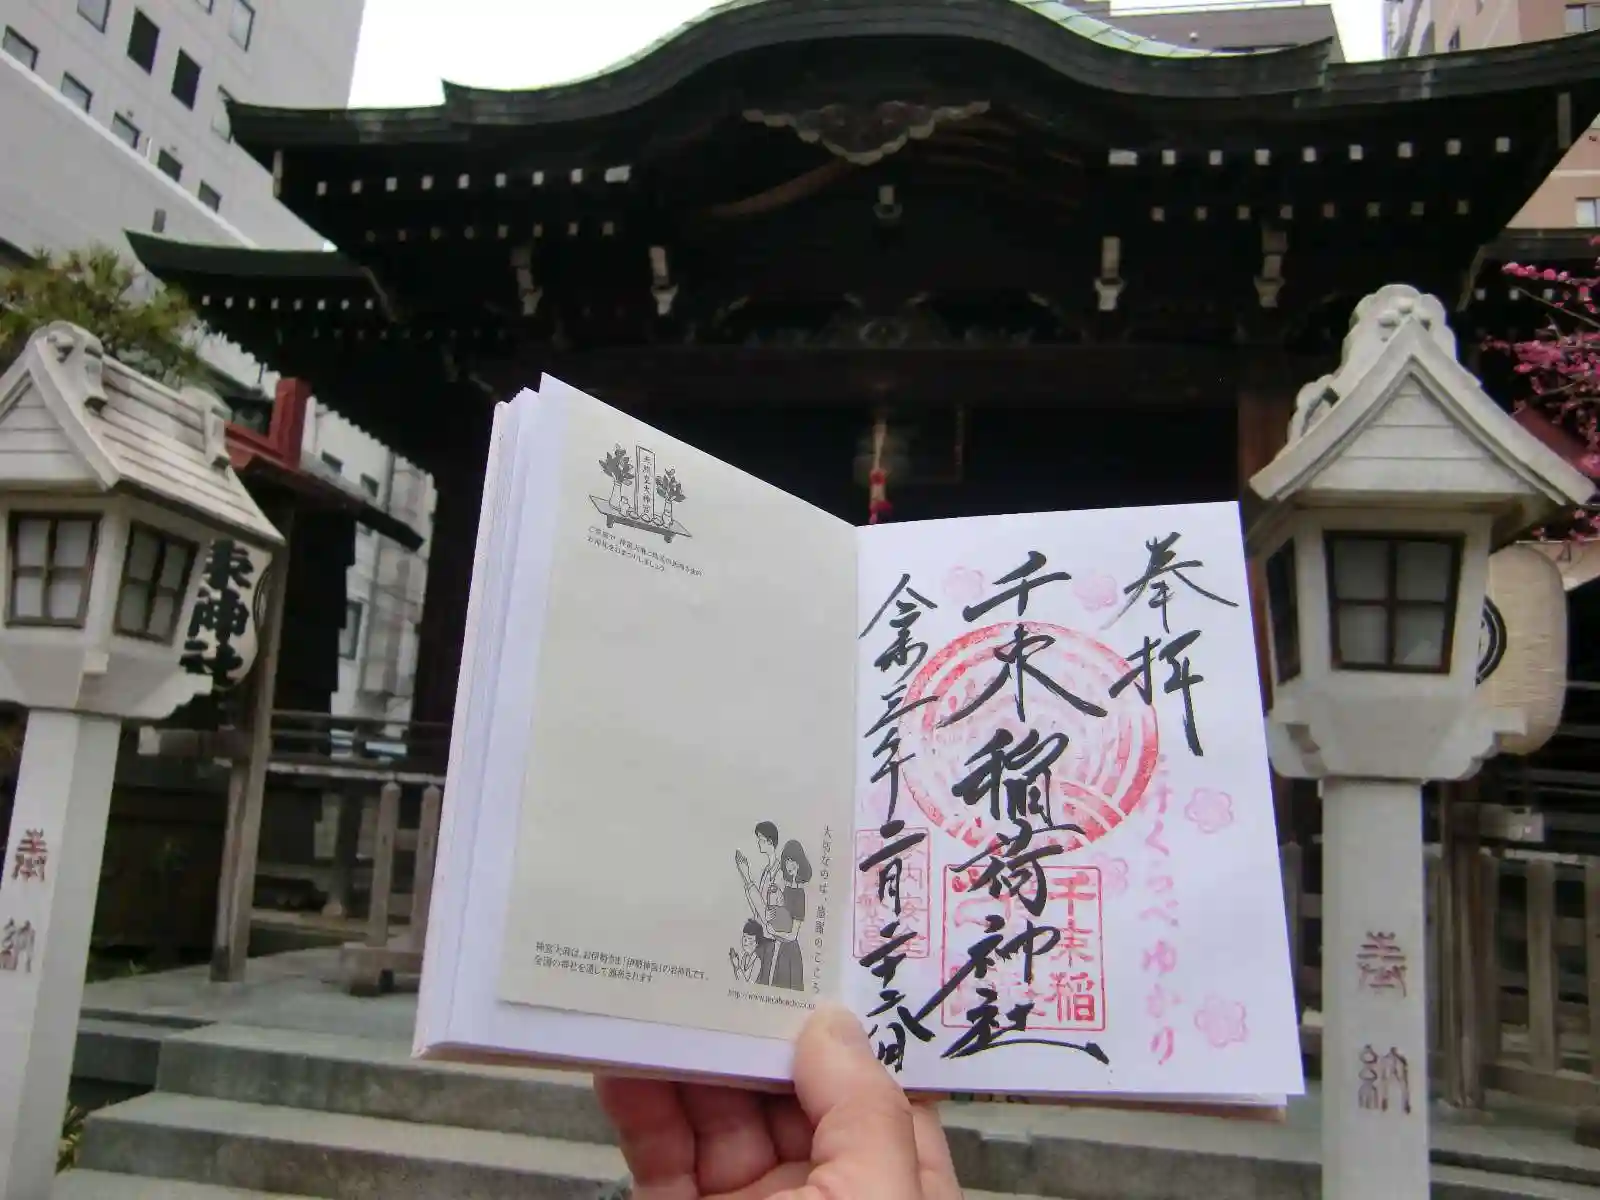 奉拝
千束稲荷神社
令和三年二月二十六日
たけくらべゆかり
千束稲
天照皇大神宮
ご家庭で、神宮大麻と氏神さまの
お神札をおまつりしましょう。
大切なのは、感謝のこころ
神宮大麻は、お伊勢さま「伊勢神宮」のお神札です。
全国の神社を通して頒布されます
束神社
奉納
奉納